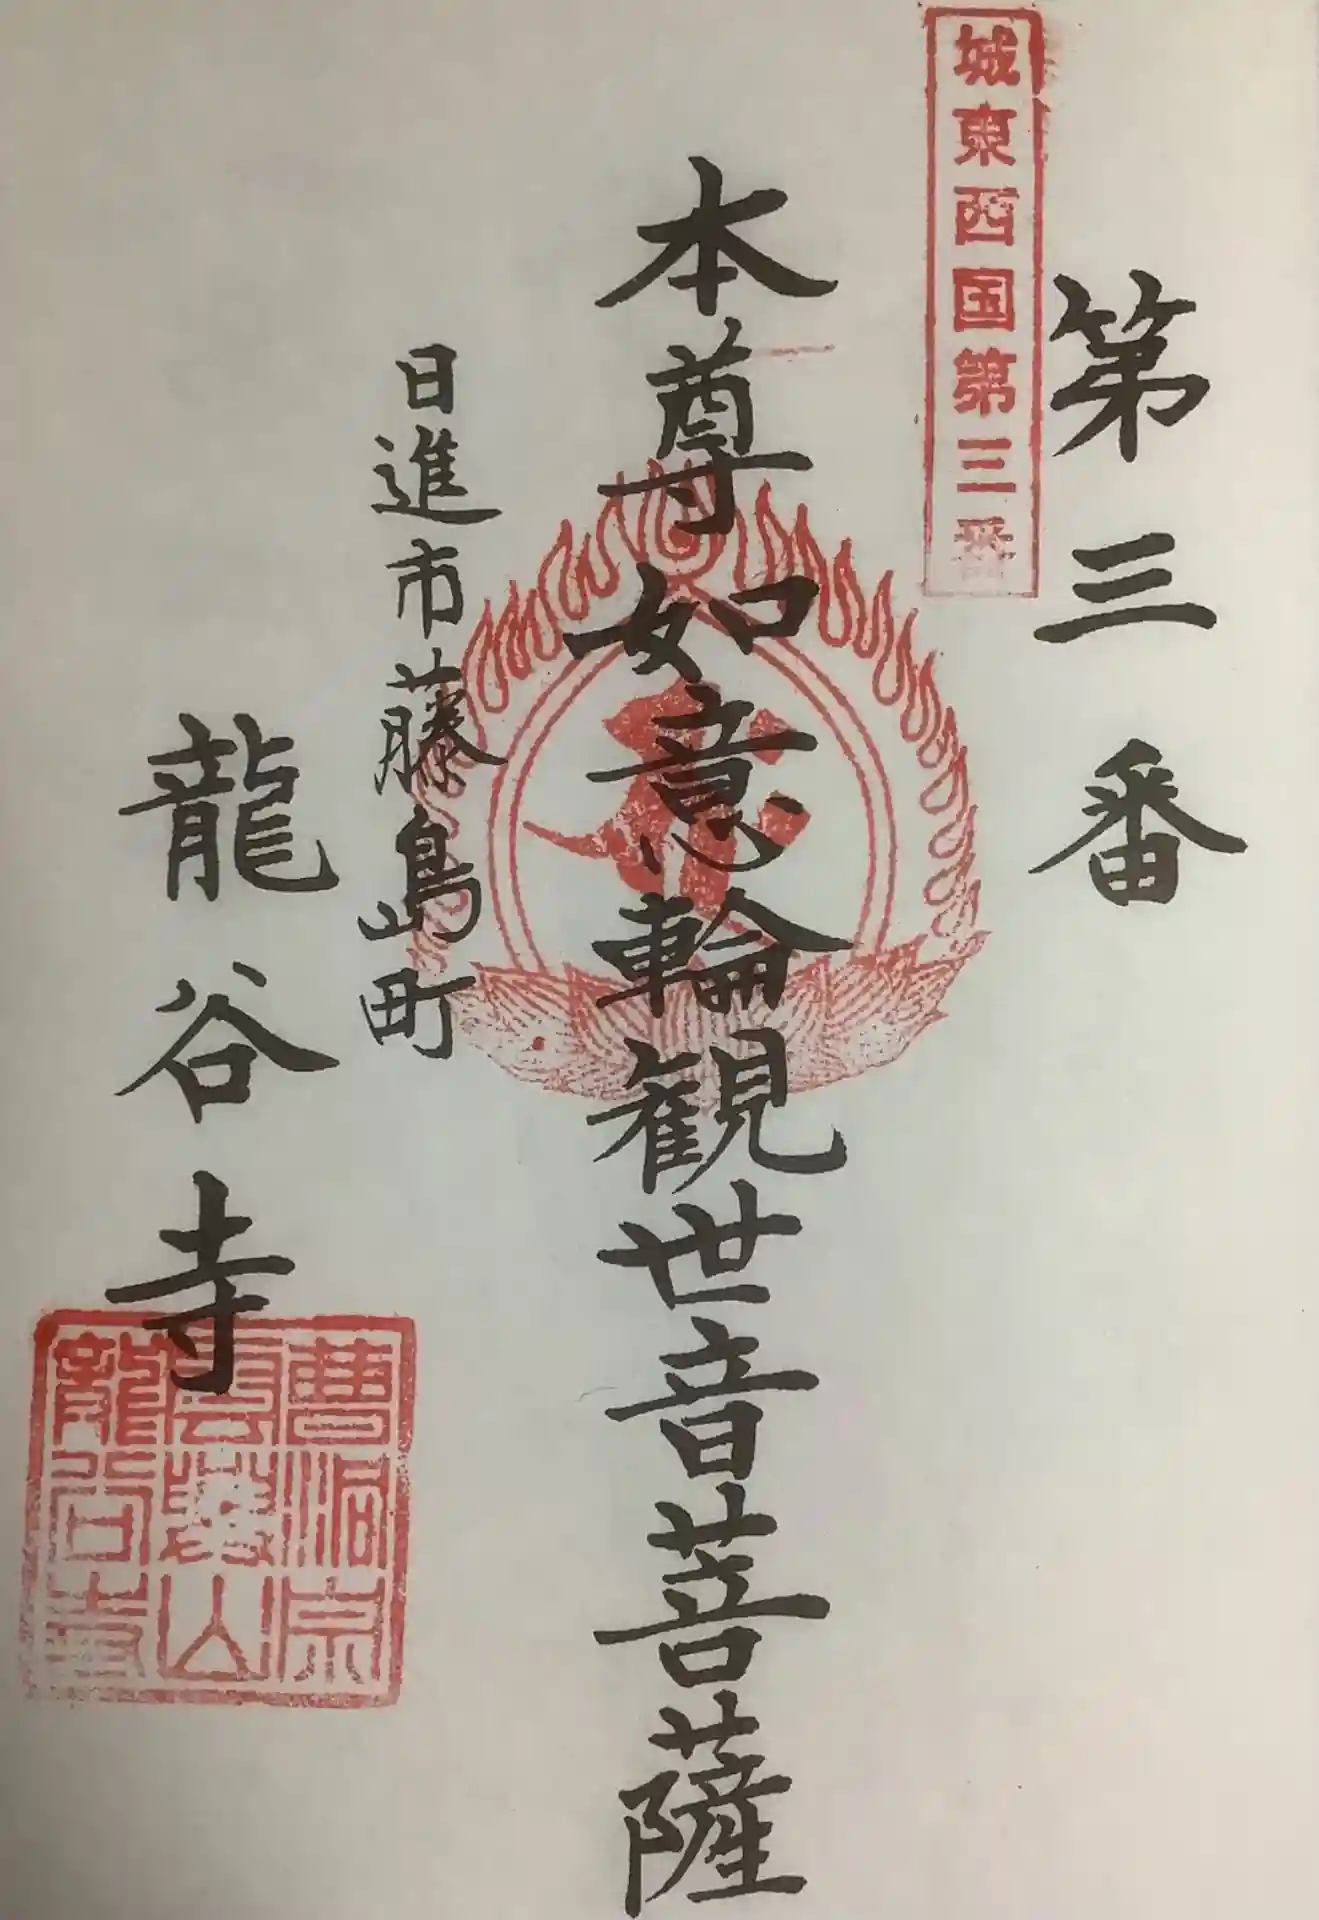 第三番
城東西国第三番
本尊如意輪観世音菩薩
日進市藤島町
龍谷寺
曹洞宗
雲華山
龍谷寺